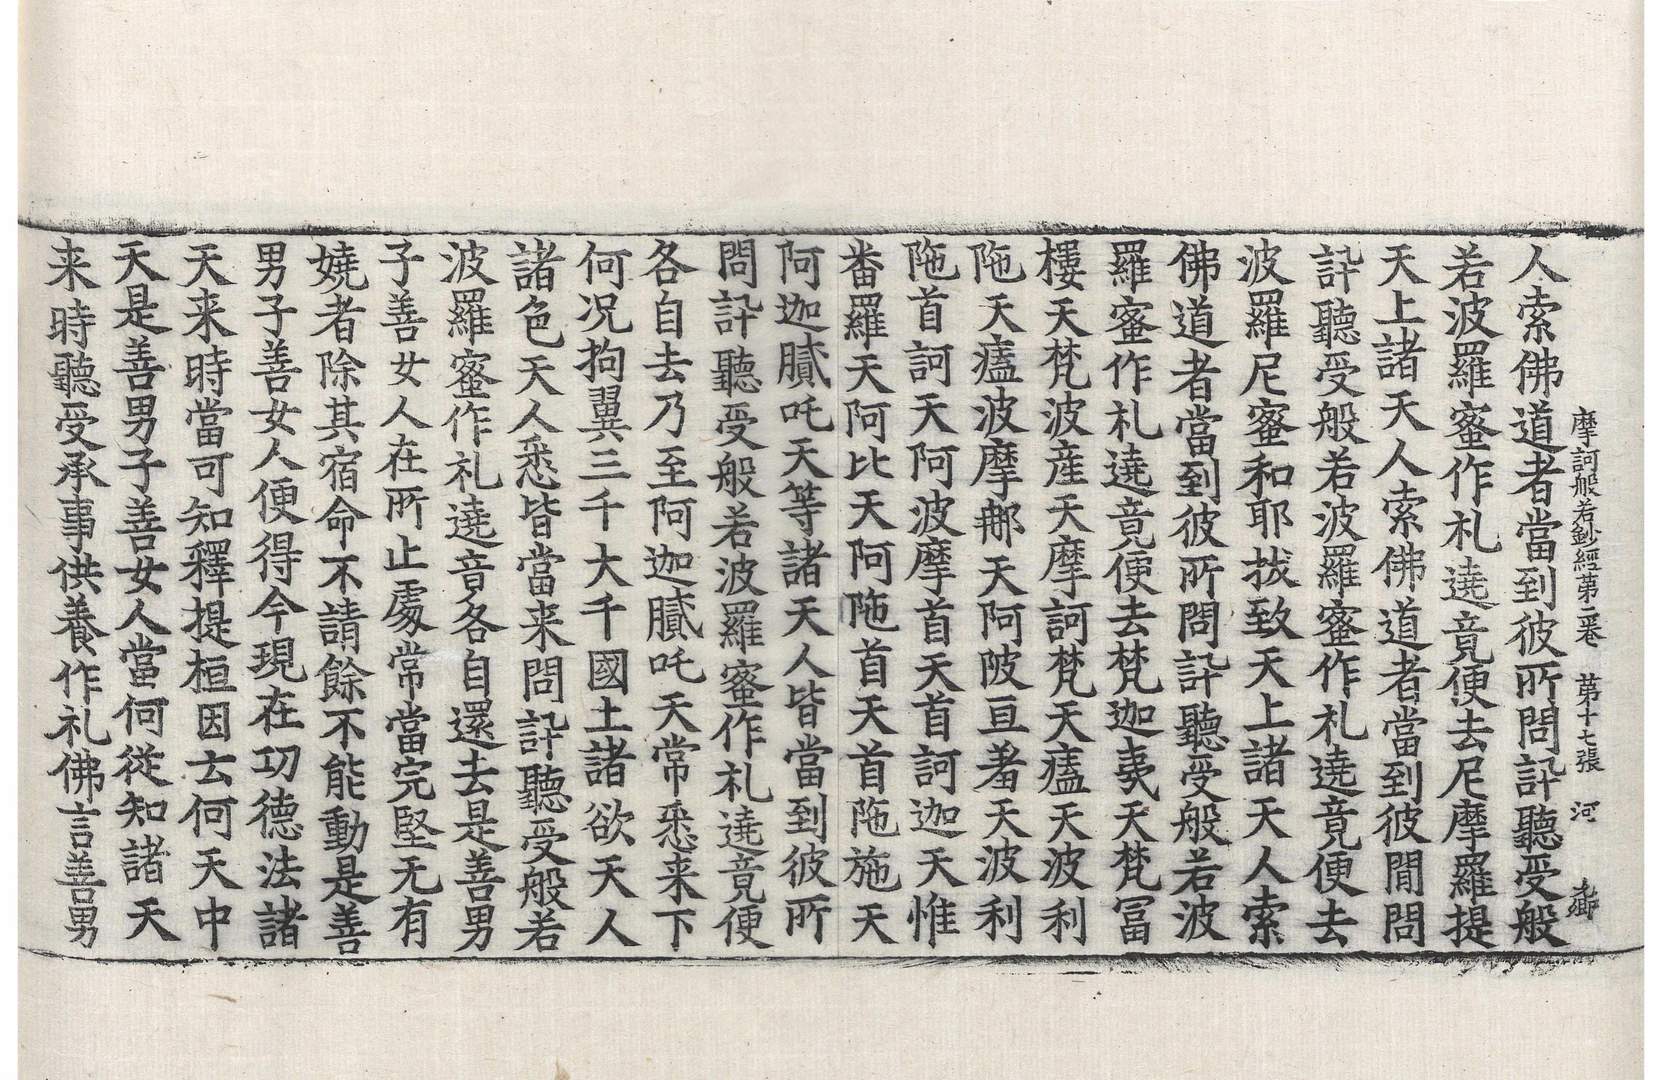 摩訶般若鈔經第二卷　第十七張　河
人索佛道者當到彼所問訊聽受般
若波羅蜜作礼遶竟便去尼摩羅提
天上諸天人索佛道者當到彼聞問
訊聽受般若波羅蜜作礼遶竟便去
波羅尼蜜和耶拔致天上諸天人索
佛道者當到彼所問訊聽受般若波
羅蜜作礼遶竟便去梵迦夷天梵冨
樓天梵波產天摩訶梵天㿄天波利
陁天㿄波摩𨚗天阿陂亘羞天波利
陁首訶天阿波摩首天首訶迦天惟
番羅天阿比天阿陁首天首陁施天
阿迦膩吒天等諸天人皆當到彼所
問訊聽受般若波羅蜜作礼遶竟便
各自去乃至阿迦膩吒天常悉来下
何况拘翼三千大千國土諸欲天人
諸色天人悉皆當来問訊聽受般若
波羅蜜作礼遶竟各自還去是善男
子善女人在所止處常當完堅无有
嬈者除其宿命不請餘不能動是善
男子善女人便得今現在功德法諸
天来時當可知釋提桓因言何天中
天是善男子善女人當何從知諸天
来時聽受承事供養作礼佛言善男